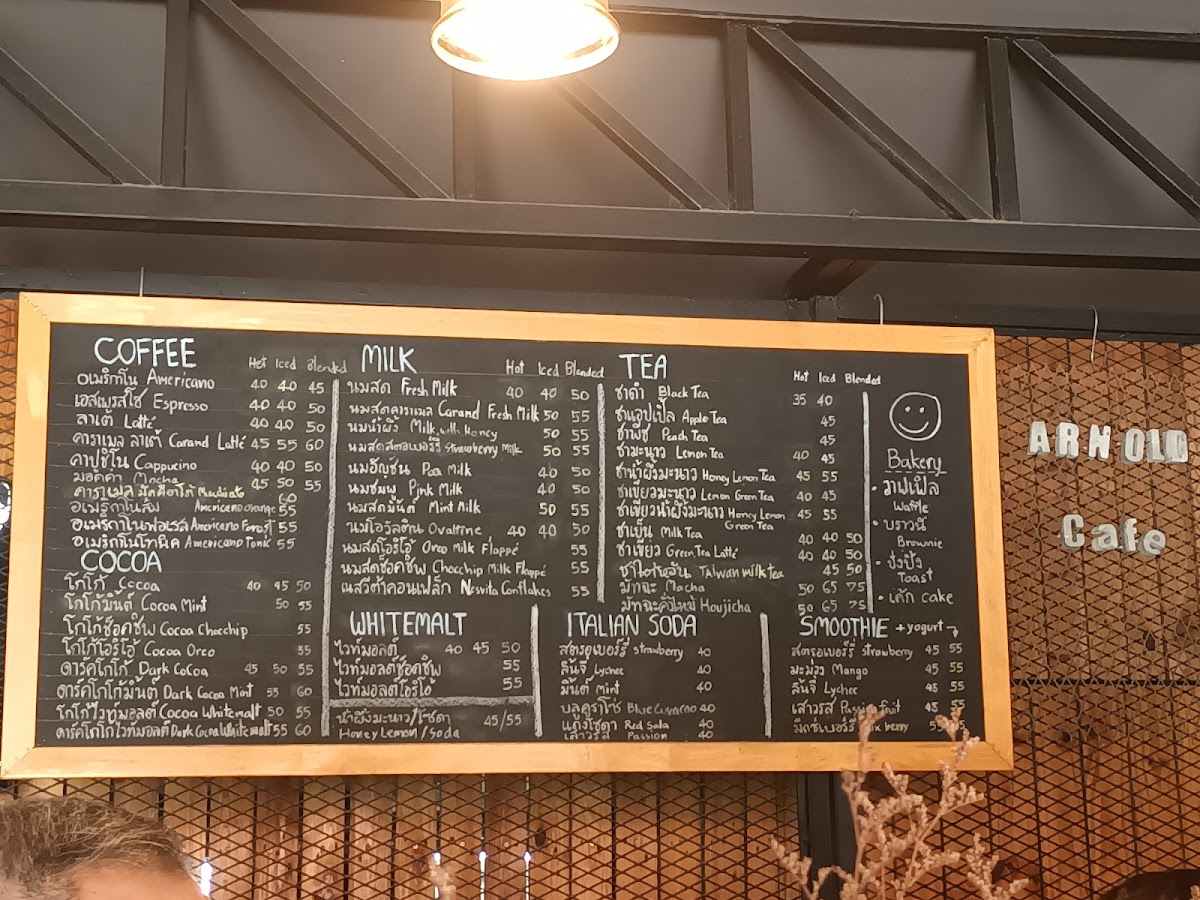 COFFEE Hot Iced Blended
อเมริกาโน Americano 40 40 45
เอสเพรสโซ่ Espresso 40 40 50
ลาเต้ Latte 40 40 50
คาราเมล ลาเต้ Caramel Latte 45 55 60
คาปูชิโน Cappucino 40 40 50
มอคค่า Mocha 45 50 55
คาราเมล มัคคิอาโก้ 60
อเมริกาโนส้ม Americano orange 55
อเมริกาโนฟอเรส Americano Forrest 55
อเมริกาโนโทนิค Americano Tonic 55
COCOA
โกโก้ Cocoa 40 45 50
โกโก้มิ้นต์ Cocoa Mint 50 55
โกโก้ช็อคชิพ Cocoa Chocchip 55
โกโก้โอริโอ้ Cocoa Oreo 55
ดาร์คโกโก้ Dark Cocoa 45 50 55
ดาร์คโกโก้มิ้นต์ Dark Cocoa Mint 55 60
โกโก้ไวท์มอลต์ Cocoa Whitemalt 50 55
ดาร์คโกโก้ไวท์มอลต์ Dark Cocoa Whitemalt 55 60
MILK Hot Iced Blended
นมสด Fresh Milk 40 40 50
นมสดคาราเมล Caramel Fresh Milk 50 55
นมน้ำผึ้ง Milk with Honey 50 55
นมสดสตรอเบอร์รี่ Strawberry Milk 50 55
นมอัญชัน Pea Milk 40 50
นมชมพู Pink Milk 40 50
นมสดมิ้นต์ Mint Milk 50 55
นมโอวัลติน Ovaltine 40 40 50
นมสดโอริโอ้ Oreo Milk Flappé 55
นมสดช็อคชิพ Chocchip Milk Flappé 55
เนสวีต้าคอนเฟล็ก Nesvita Conflakes 55
WHITEMALT
ไวท์มอลต์ 40 45 50
ไวท์มอลต์ช็อคชิพ 55
ไวท์มอลต์โอริโอ้ 55
น้ำผึ้งมะนาว/โซดา 45/55
Honey Lemon/Soda
TEA Hot Iced Blended
ชาดำ Black Tea 35 40
ชาแอปเปิ้ล Apple Tea 45
ชาพีช Peach Tea 45
ชามะนาว Lemon Tea 40 45
ชาน้ำผึ้งมะนาว Honey Lemon Tea 45 55
ชาเขียวมะนาว Lemon Green Tea 40 45
ชาเขียวน้ำผึ้งมะนาว Honey Lemon Green Tea 45 55
ชาเย็น Milk Tea 40 40 50
ชาเขียว Green Tea Latté 40 40 50
ชาไต้หวัน Taiwan milk tea 45 50
มัทฉะ Macha 50 65 75
มัทฉะคั่วใหม่ Houjicha 50 65 75
Bakery
• วาฟเฟิล
Waffle
• บราวนี่
Brownie
• ปังปิ้ง
Toast
• เค้ก cake
ITALIAN SODA
สตรอเบอร์รี่ strawberry 40
ลิ้นจี่ Lychee 40
มิ้นต์ Mint 40
บลูคูราโซ่ Blue Curacao 40
แดงโซดา Red Soda 40
เสาวรส Passion 40
SMOOTHIE +yogurt
สตรอเบอร์รี่ strawberry 45 55
มะม่วง Mango 45 55
ลิ้นจี่ Lychee 45 55
เสาวรส Passion Fruit 45 55
มิกซ์เบอร์รี่ berry
ARNOLD
Cafe